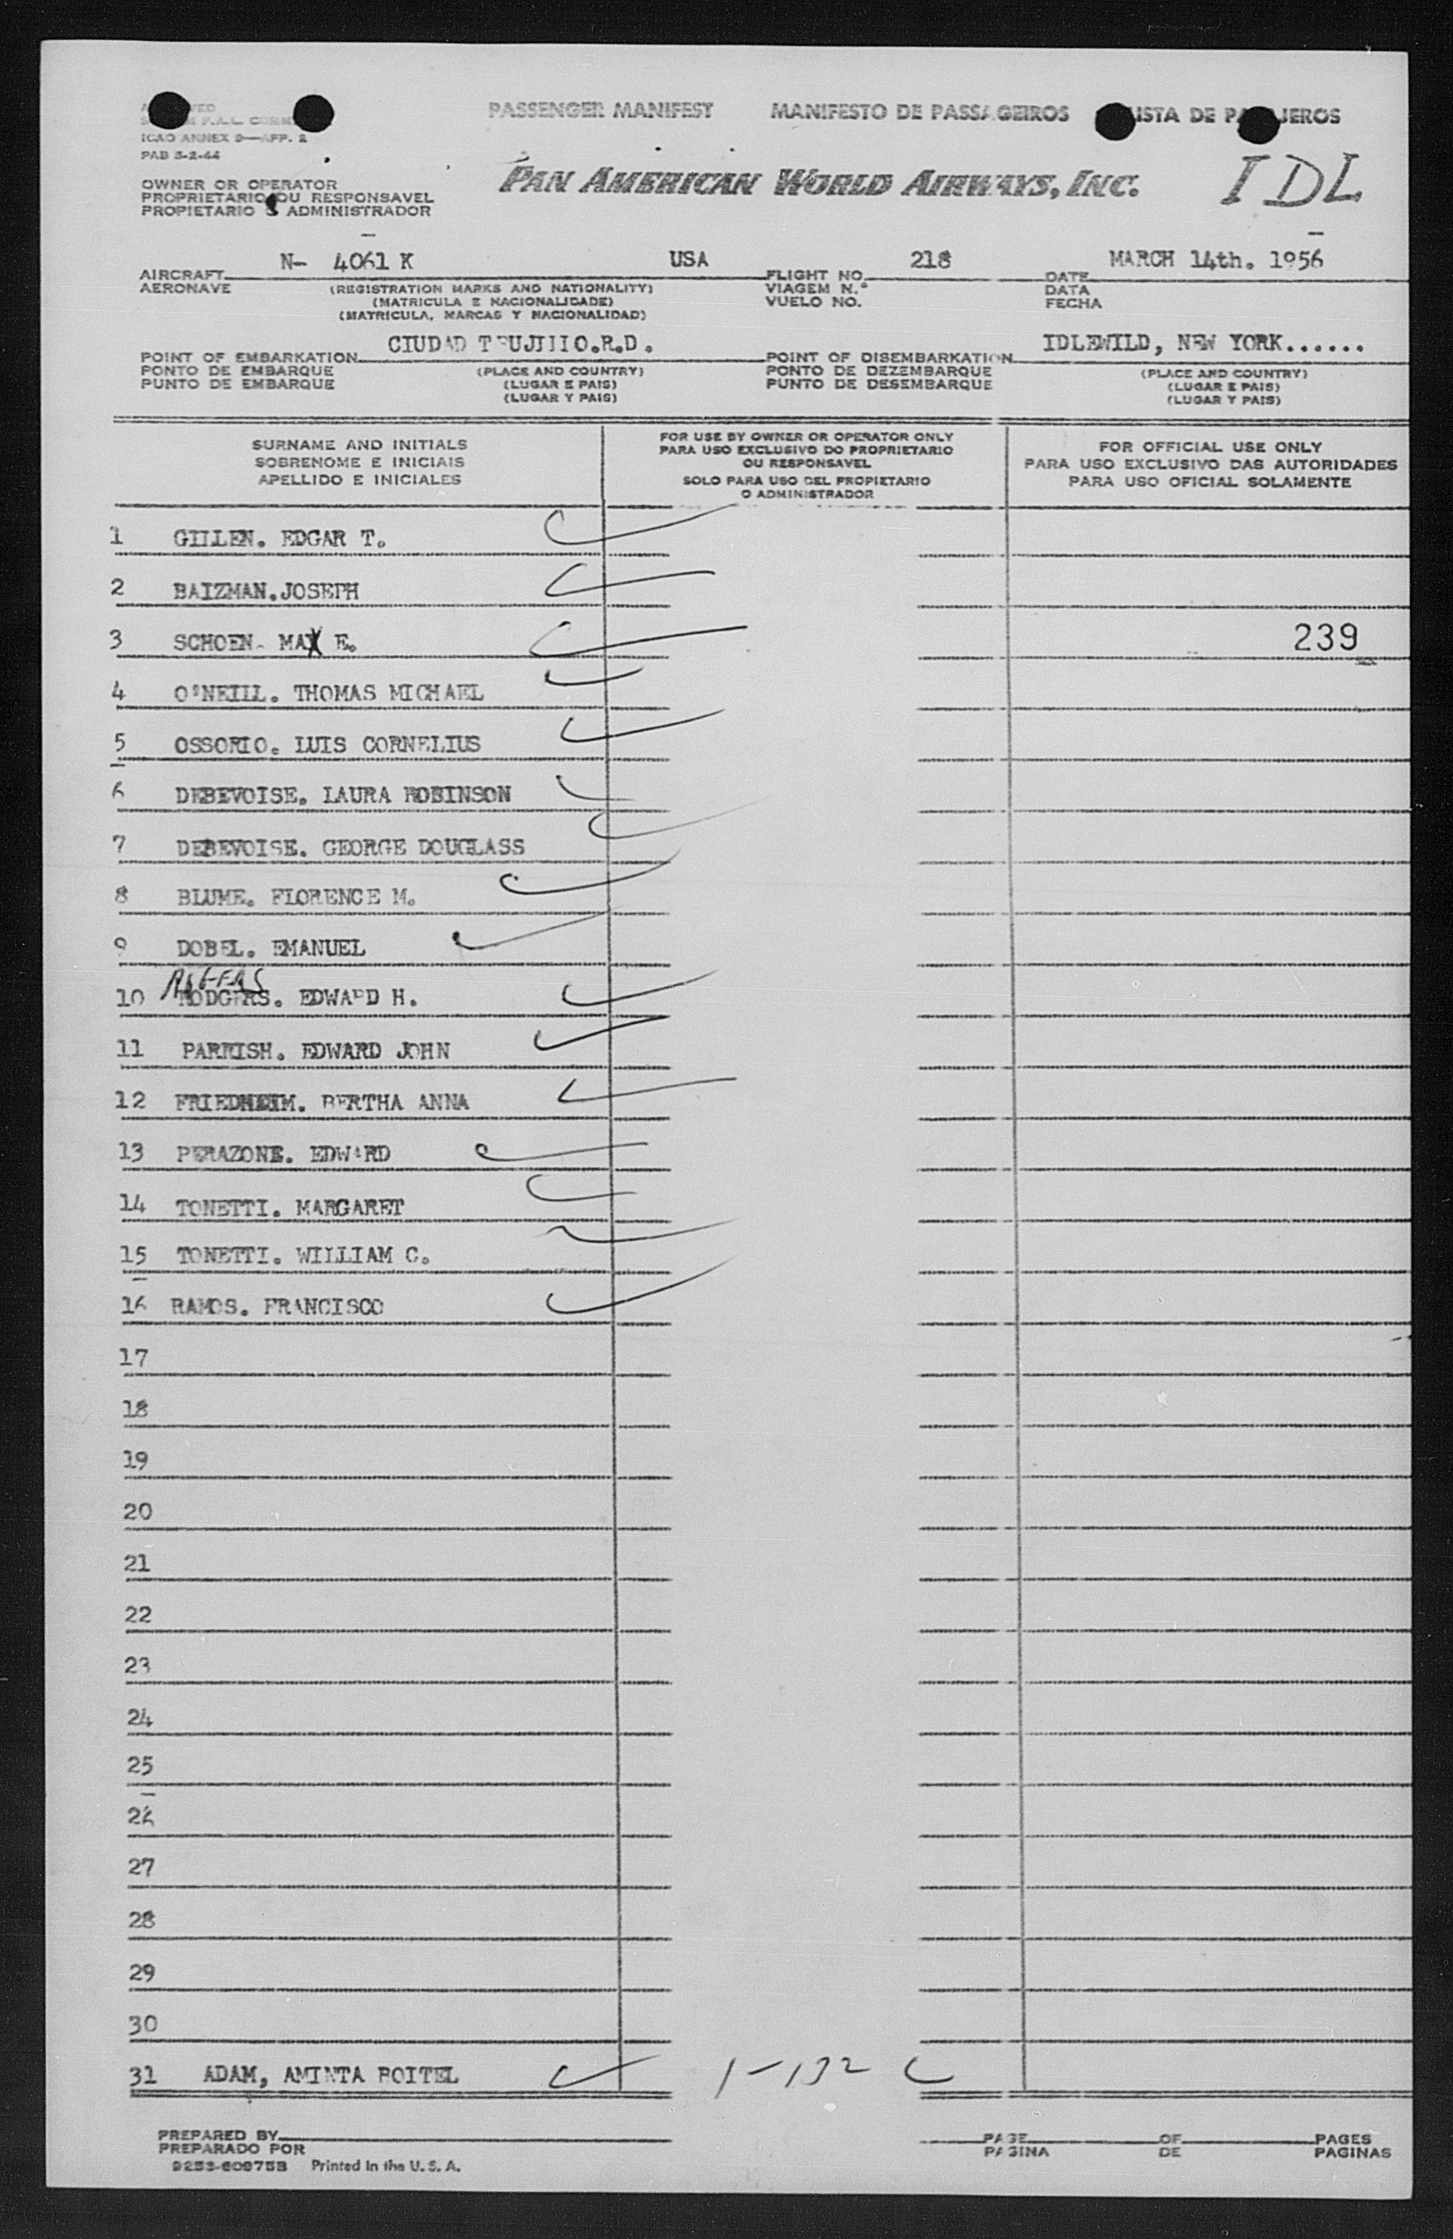 PASSENGER MANIFEST MANIFESTO DE PASSAGEIROS LISTA DE PASAJEROS
ICAO ANNEX 9—APP. 2
PAB 5-2-44
PAN AMERICAN WORLD AIRWAYS, INC. IDL
OWNER OR OPERATOR
PROPRIETARIO OU RESPONSAVEL
PROPIETARIO O ADMINISTRADOR
N- 4061 K USA 218 MARCH 14th. 1956
AIRCRAFT FLIGHT NO. DATE
AERONAVE (REGISTRATION MARKS AND NATIONALITY) VIAGEM N.° DATA
(MATRICULA E NACIONALIDADE) VUELO NO. FECHA
(MATRICULA, MARCAS Y NACIONALIDAD)
CIUDAD TRUJILLO.R.D. IDLEWILD, NEW YORK......
POINT OF EMBARKATION POINT OF DISEMBARKATION
PONTO DE EMBARQUE (PLACE AND COUNTRY) PONTO DE DEZEMBARQUE (PLACE AND COUNTRY)
PUNTO DE EMBARQUE (LUGAR E PAIS) PUNTO DE DESEMBARQUE (LUGAR E PAIS)
(LUGAR Y PAIS) (LUGAR Y PAIS)
SURNAME AND INITIALS
SOBRENOME E INICIAIS
APELLIDO E INICIALES
FOR USE BY OWNER OR OPERATOR ONLY
PARA USO EXCLUSIVO DO PROPRIETARIO
OU RESPONSAVEL
SOLO PARA USO DEL PROPIETARIO
O ADMINISTRADOR
FOR OFFICIAL USE ONLY
PARA USO EXCLUSIVO DAS AUTORIDADES
PARA USO OFICIAL SOLAMENTE
1 GILLEN. EDGAR T.
2 BAIZMAN.JOSEPH
3 SCHOEN- MAX E. 239
4 O'NEILL. THOMAS MICHAEL
5 OSSORIO. LUIS CORNELIUS
6 DEBEVOISE. LAURA ROBINSON
7 DEBEVOISE. GEORGE DOUGLASS
8 BLUME. FLORENCE M.
9 DOBEL. EMANUEL
10 RODGERS. EDWARD H.
11 PARRISH. EDWARD JOHN
12 FRIEDHEIM. BERTHA ANNA
13 PERAZONE. EDWARD
14 TONETTI. MARGARET
15 TONETTI. WILLIAM C.
16 RAMOS. FRANCISCO
17
18
19
20
21
22
23
24
25
26
27
28
29
30
31 ADAM, AMINTA BOITEL 1-132 C
PREPARED BY PAGE OF PAGES
PREPARADO POR PAGINA DE PAGINAS
Printed in the U. S. A.